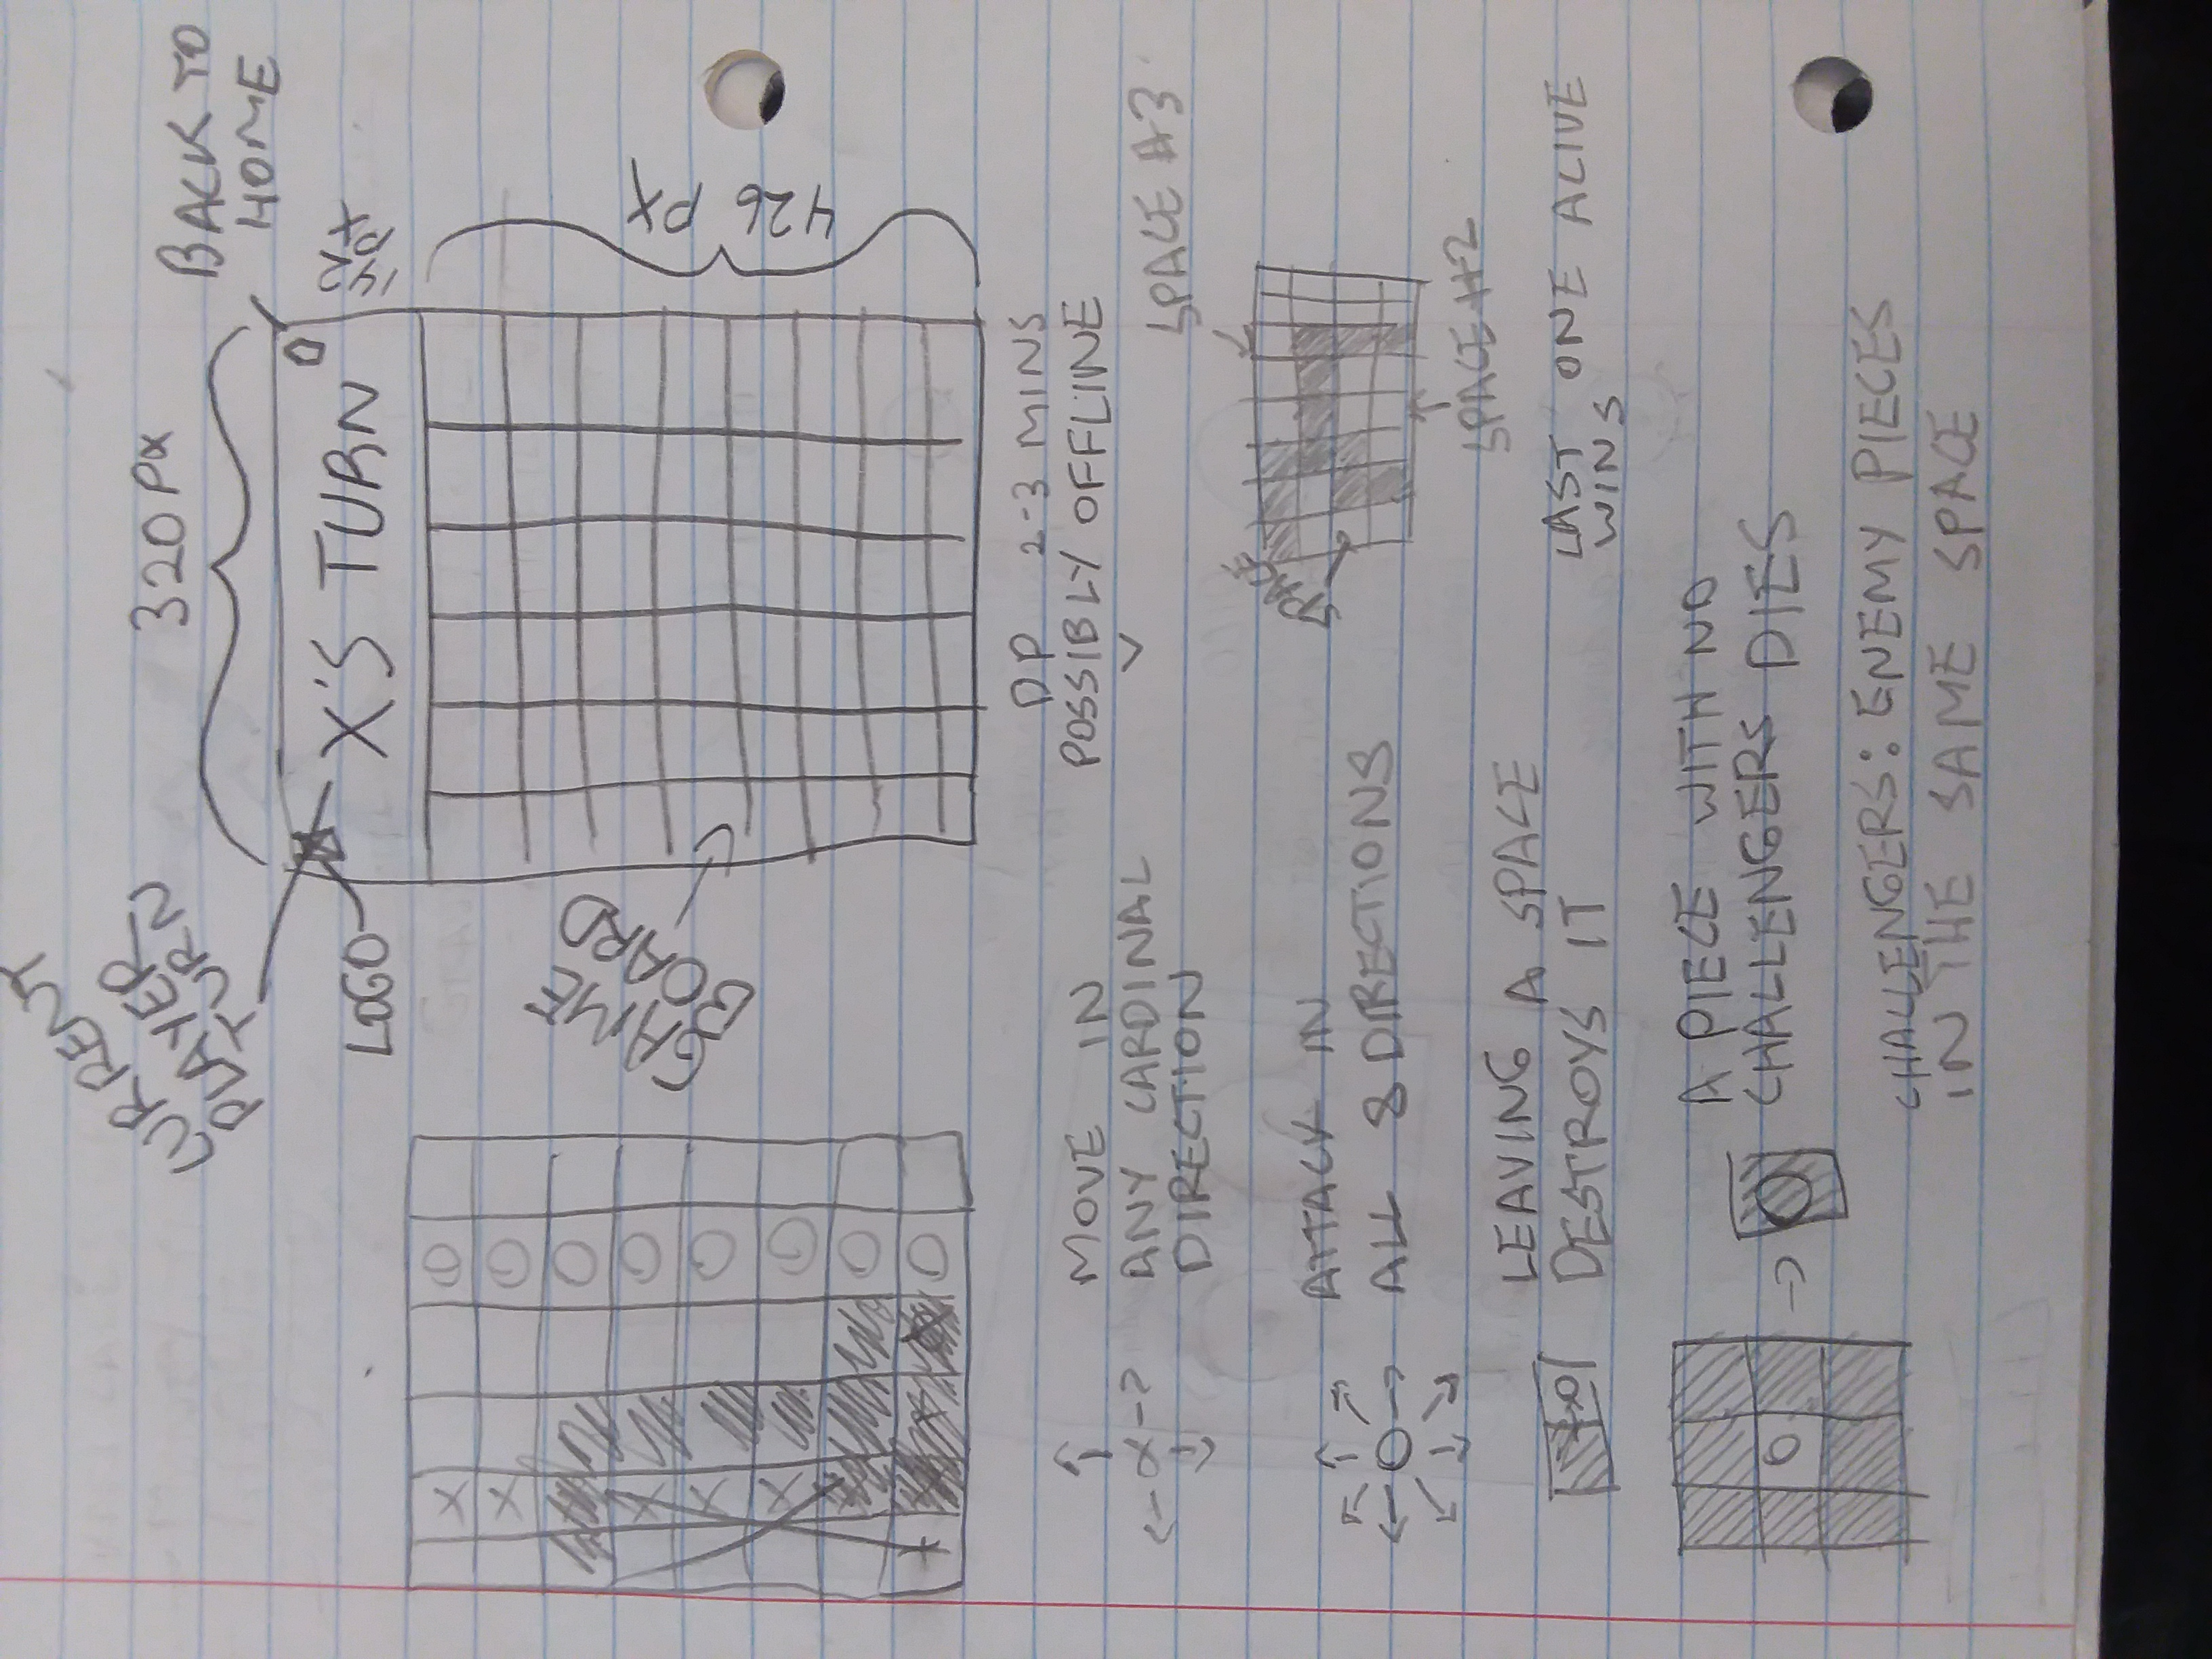 CURRENT
PLAYER
TURN
320 PX
BACK TO
HOME
LOGO
X'S TURN
142
PX
X O
X O
O
X O
X O
X O
O
O
GAME
BOARD
426 PX
DP 2-3 MINS
POSSIBLY OFFLINE
MOVE IN
ANY CARDINAL
DIRECTION
SPACE #3
SPACE
ATTACK IN
ALL 8 DIRECTIONS
SPACE #2
LEAVING A SPACE
DESTROYS IT
LAST ONE ALIVE
WINS
A PIECE WITH NO
CHALLENGERS DIES
CHALLENGERS: ENEMY PIECES
IN THE SAME SPACE